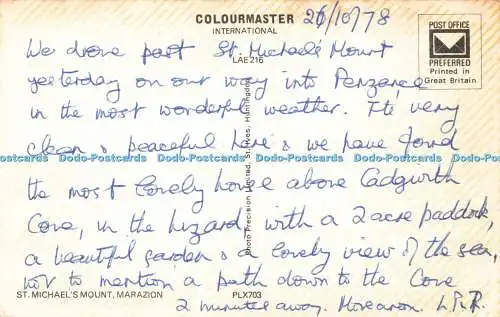 COLOURMASTER 26/10/78
INTERNATIONAL
POST OFFICE
PREFERRED
Printed in
Great Britain
LAE216
We drove past St. Michael's Mount
yesterday on our way into Penzance
in the most wonderful weather. It's very
clean & peaceful here & we have found
Dodo-Postcards Dodo-Postcards Dodo-Postcards Dodo-Postcards Dodo-Postcards Dodo-Postcards Dodo-Postcards
the most lovely house above Cadgwith
Cove, in the Lizard with a 2 acre paddock,
a beautiful garden & a lovely view of the sea,
not to mention a path down to the Cove
2 minutes away. More anon. L.R.
Photo Precision Limited, St. Ives, Huntingdon
ST. MICHAEL'S MOUNT, MARAZION PLX703